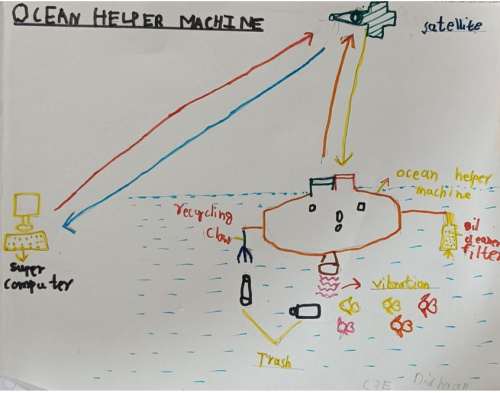 OCEAN HELPER MACHINE
satellite
ocean helper
machine
recycling
claw
oil
cleaner
filter
super
computer
vibration
Trash